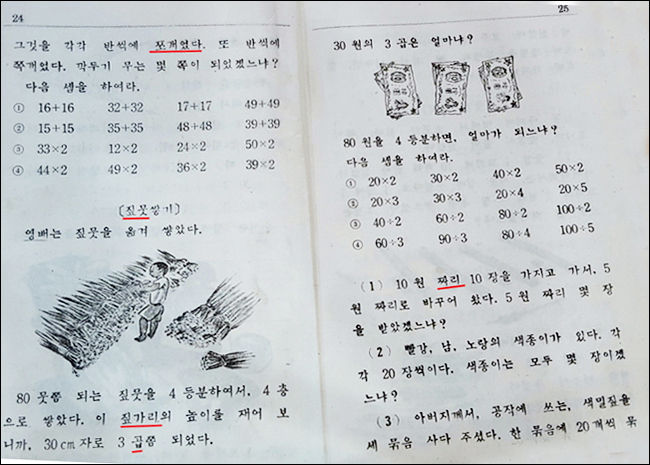 24
그것을 각각 반씩에 쪼개었다. 또 반씩에
쪽개었다. 깍두기 무는 몇 쪽이 되었겠느냐?
다음 셈을 하여라.
① 16+16 32+32 17+17 49+49
② 15+15 35+35 48+48 39+39
③ 33×2 12×2 24×2 50×2
④ 44×2 49×2 36×2 39×2
〔짚뭇쌓기〕
영배는 짚뭇을 옮겨 쌓았다.
80 뭇쯤 되는 짚뭇을 4 등분하여서, 4 층
으로 쌓았다. 이 짚가리의 높이를 재어 보
니까, 30 cm 자로 3 곱쯤 되었다.
25
30 원의 3 곱은 얼마냐?
80 원을 4 등분하면, 얼마가 되느냐?
다음 셈을 하여라.
① 20×2 30×2 40×2 50×2
② 20×3 30×3 20×4 20×5
③ 40÷2 60÷2 80÷2 100÷2
④ 60÷3 90÷3 80÷4 100÷5
(1) 10 원 짜리 10 장을 가지고 가서, 5
원 짜리로 바꾸어 왔다. 5 원 짜리 몇 장
을 받았겠느냐?
(2) 빨강, 남, 노랑의 색종이가 있다. 각
각 20 장씩이다. 색종이는 모두 몇 장이겠
느냐?
(3) 아버지께서, 공작에 쓰는, 색밀짚을
세 묶음 사다 주셨다. 한 묶음에 20 개씩 묶